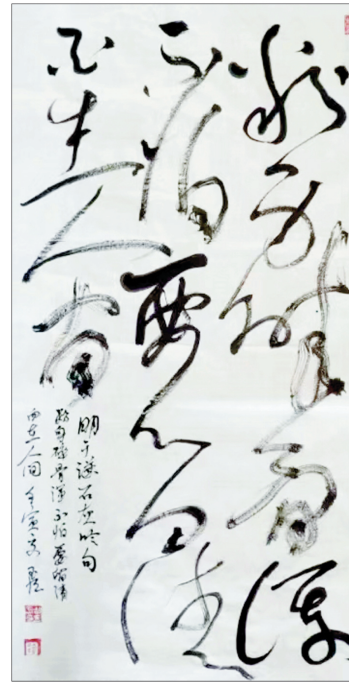 粉身碎骨浑
不怕要留清
白在人间
明于谦石灰吟句
粉身碎骨浑不怕要留清
白在人间 壬寅